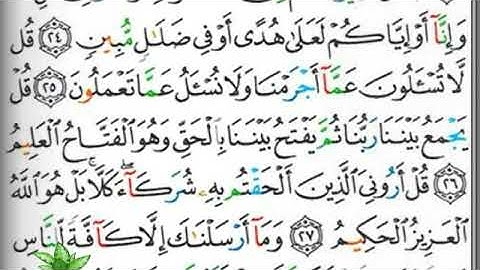 وَإِنَّآ أَوْ إِيَّاكُمْ لَعَلَىٰ هُدًى أَوْ فِى ضَلَٰلٍ مُّبِينٍ ﴿٢٤﴾ قُل
لَّا تُسْـَٔلُونَ عَمَّآ أَجْرَمْنَا وَلَا نُسْـَٔلُ عَمَّا تَعْمَلُونَ ﴿٢٥﴾ قُلْ
يَجْمَعُ بَيْنَنَا رَبُّنَا ثُمَّ يَفْتَحُ بَيْنَنَا بِٱلْحَقِّ وَهُوَ ٱلْفَتَّاحُ ٱلْعَلِيمُ
﴿٢٦﴾ قُلْ أَرُونِىَ ٱلَّذِينَ أَلْحَقْتُم بِهِۦ شُرَكَآءَ ۖ كَلَّا ۚ بَلْ هُوَ ٱللَّهُ
ٱلْعَزِيزُ ٱلْحَكِيمُ ﴿٢٧﴾ وَمَآ أَرْسَلْنَٰكَ إِلَّا كَآفَّةً لِّلنَّاسِ